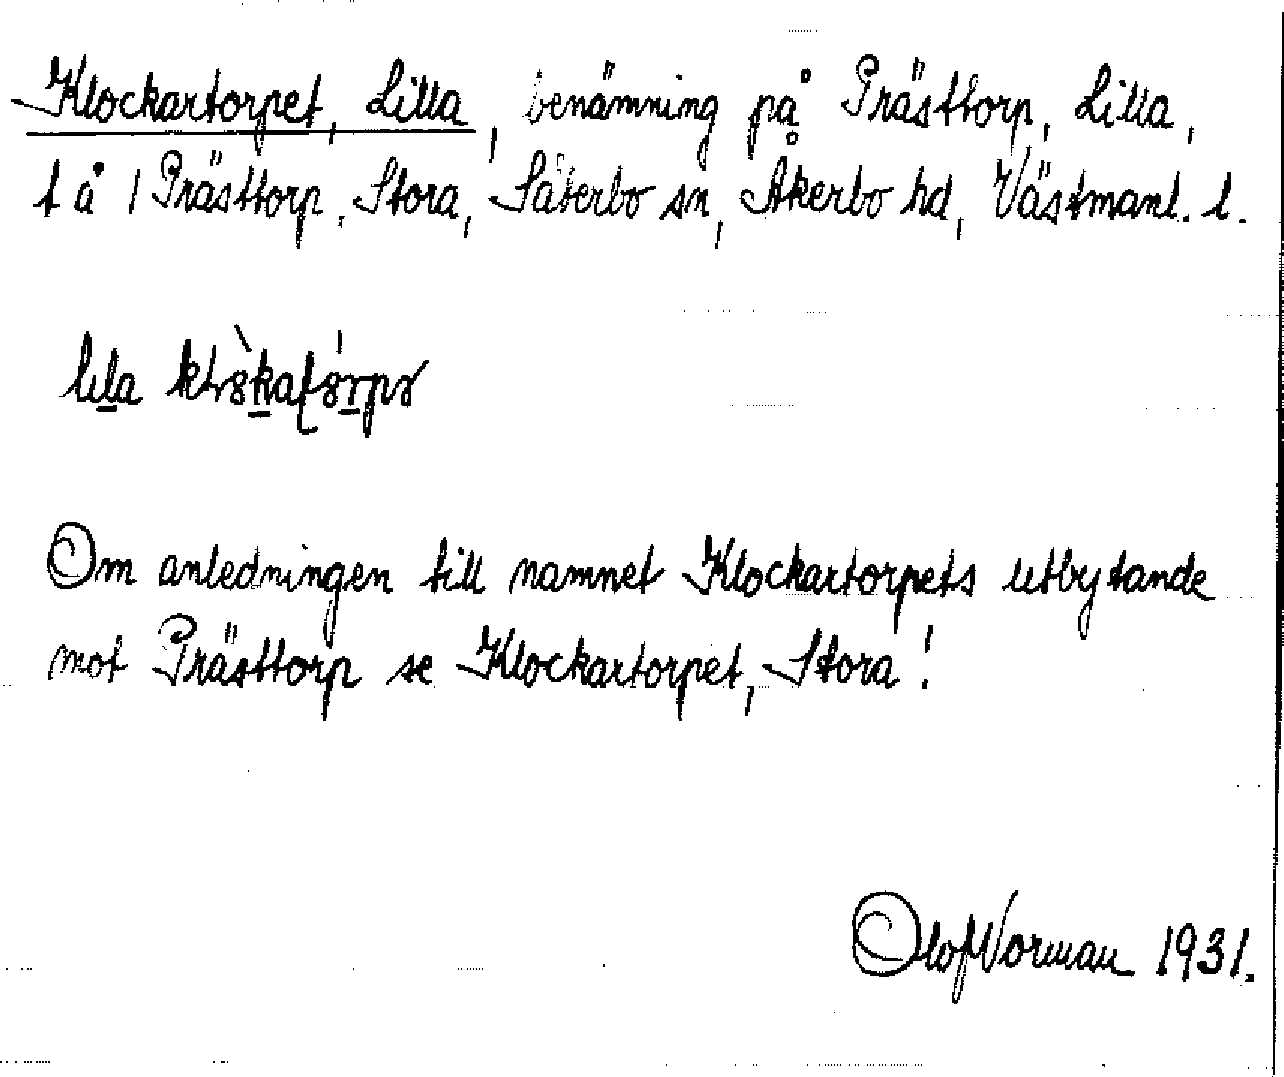 Klockartorpet, Lilla, benämning på Prästtorp, Lilla,
t å 1 Prästtorp, Stora, Säterbo sn, Åkerbo hd, Västmanl. l.
Om anledningen till namnet Klockartorpets utbytande
mot Prästtorp se Klockartorpet, Stora!
Olof Norman 1931.